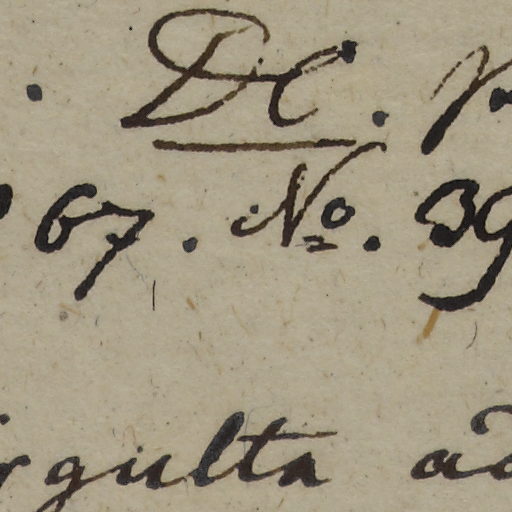 . DC. p
67. No. 39
rgulta ad